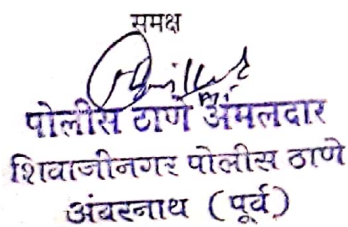 समक्ष
पोलीस ठाणे अंमलदार
शिवाजीनगर पोलीस ठाणे
अंबरनाथ (पूर्व)